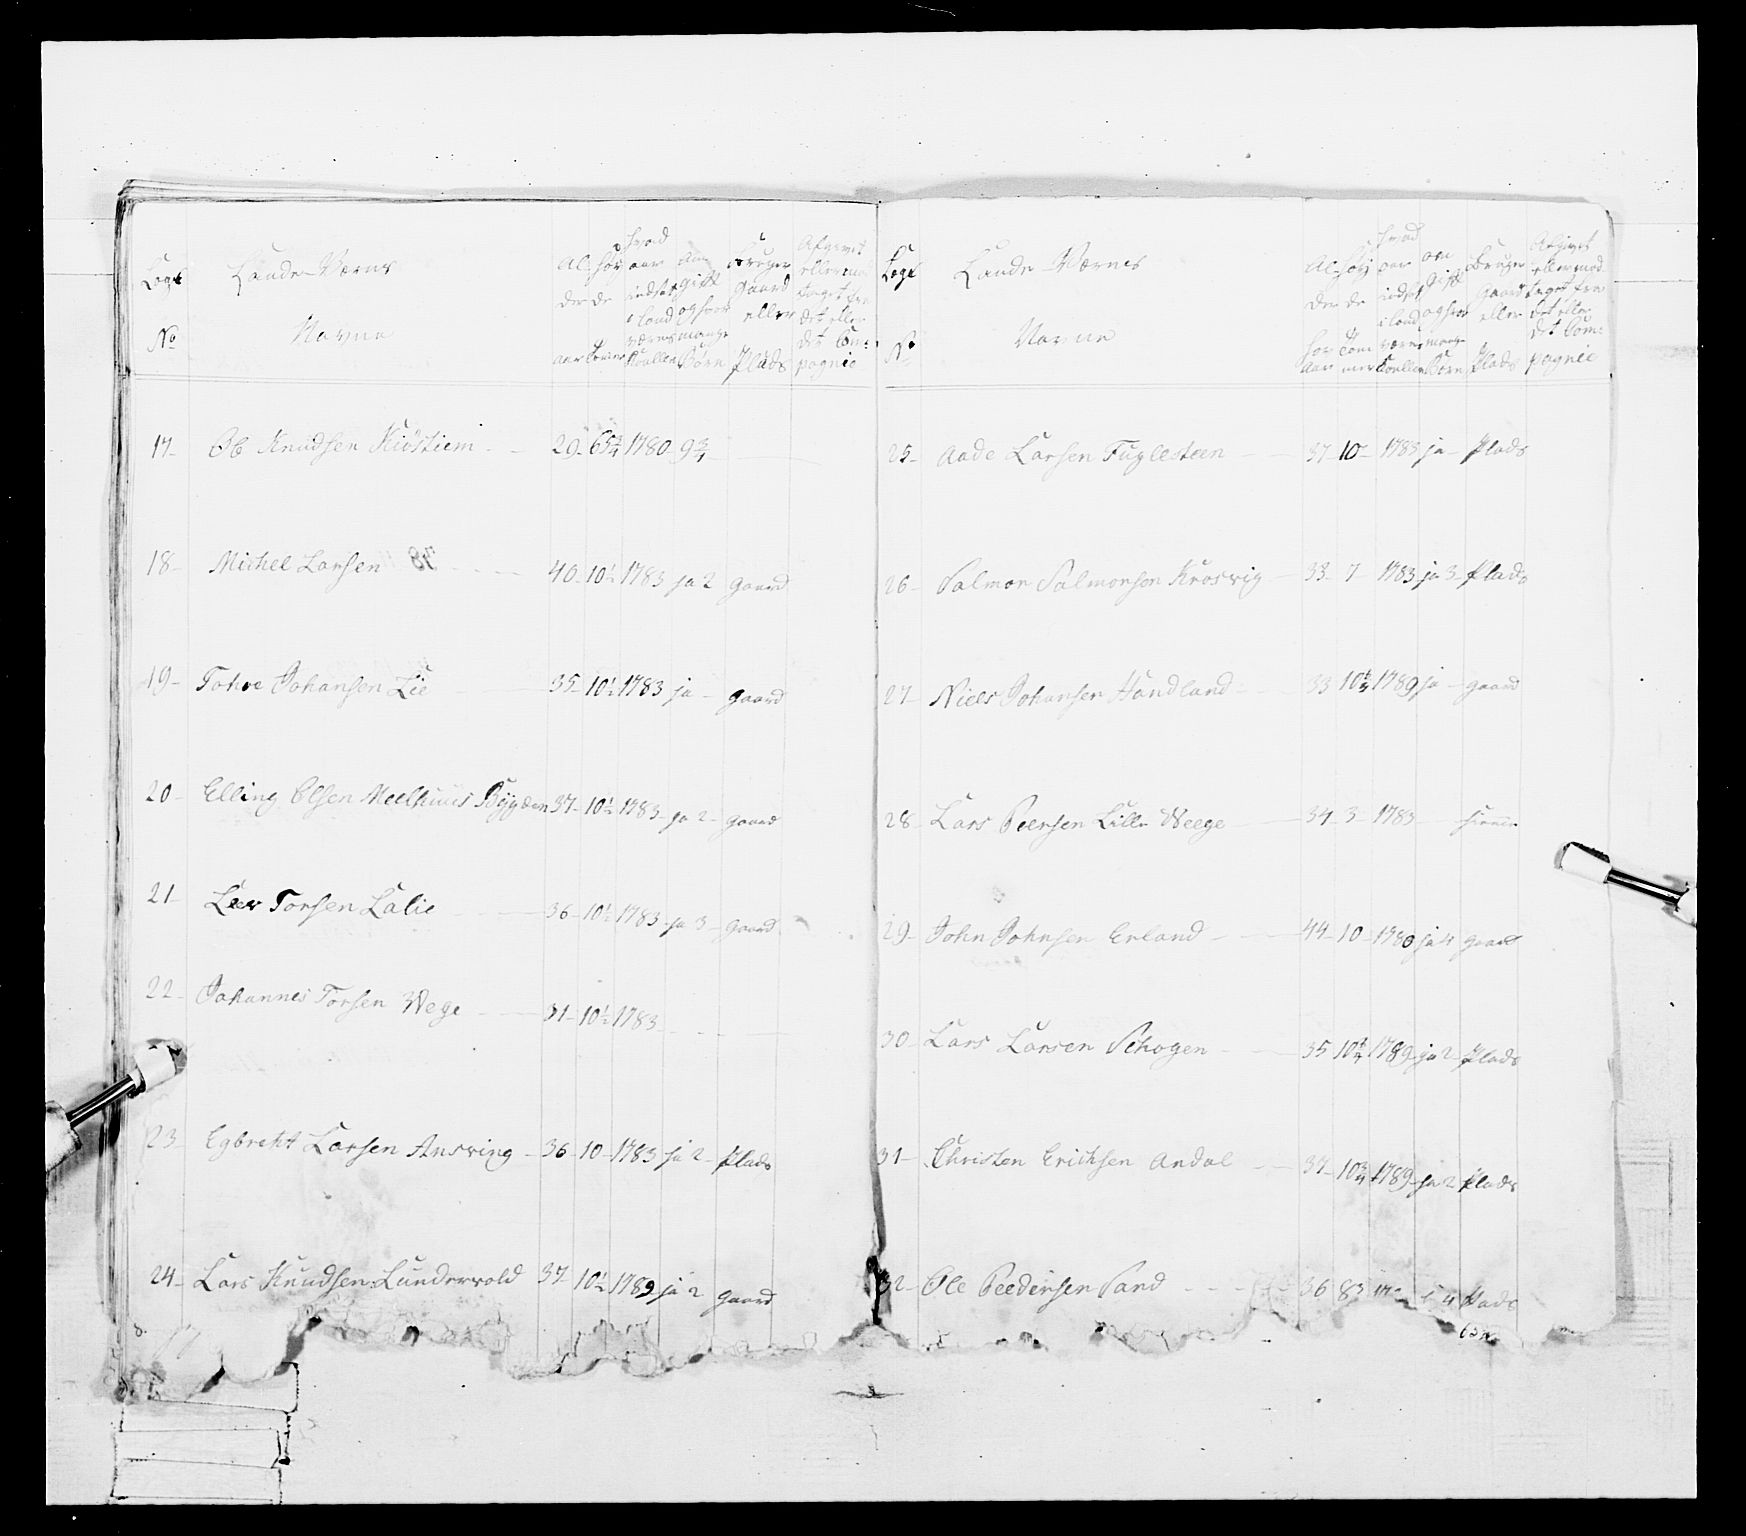 Legd
No
Lande-Værns
Navne
Al
der
aar
Høy
de
Tommer
hvad
aar
indsat
i Land
værns
Roullen
om
gift
og hvor
mange
Børn
Bruger
Gaard
eller
Plads
Afgivet
eller mod
taget fra
det eller
det Com:
pagnie
17- Ole Knudsen Kiöstiem - - 29- 6 5 3/4 1780- 9 3/4
18- Michel Larsen 40- 10 1/2 1783 ja 2 gaard
19- Tohre Johansen Lie 35- 10 1/2 1783 ja - gaard
20- Elling Olsen Meelhuus Bygden 37- 10 1/2 1783- ja 2- gaard
21- Leer Torsen Lalie 36- 10 1/2 1783- ja 3- gaard
22- Johannes Torsen Wege 31- 10 1/2 1783-
23- Egbreht Larsen Answing - 36- 10- 1783- ja 2- Plads
24- Lars Knudsen Lunderwold 37- 10 1/2 1789 ja 2 gaard
Legd
No
Lande-Værnes
Navne
Al
der
hor
Aar
Høy
de
Tom
mer
hvad
aar
indsat
i Land
værns
Roullen
om
gift
og hvor
mange
Børn
Bruger
Gaard
eller
Plads
Afgivet
eller mod
taget fra
det eller
det Com:
pagnie
25- Aade Larsen Fuglesteen 37- 10- 1783 ja- Plads
26- Salmon Salmonsen Krosvig - 33- 7- 1783 ja 3- Plads
27- Niels Johansen Handland 33- 10 1/2 1789 ja - gaard
28- Lars Peersen Lille Weege 34- 3- 1783
29- John Johnsen Erland 44- 10- 1780 ja 4 gaard
30- Lars Larsen Schogen 35 10 1/4 1789- ja 2- Plads
31- Christen Erichsen Andal 37- 10 3/4 1789- ja 2 Plads
32- Ole Peedersen Sand 36 8 3 4 Plads